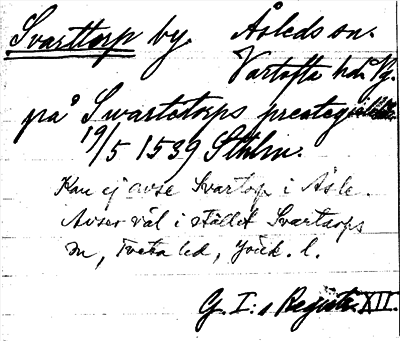 Svarttorp by. Åsleds sn.
Vartofta hd. Vg.
på Swartetorps prestegield
19/5 1539 Sthlm.
Kan ej avse Svartorp i Åsle.
Avser väl i stället Svartarps
sn, Tveta hd, Jönk. l.
G. I:s Registr. XII.